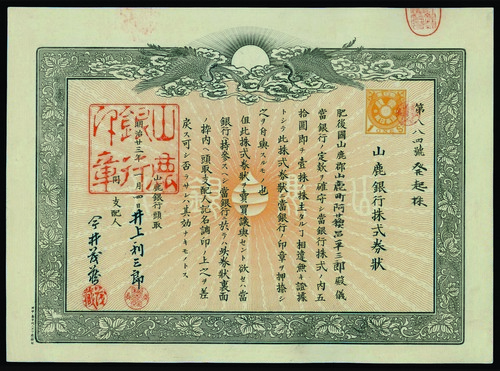 第八八四號
山鹿銀行株式券狀
肥後國山鹿郡山鹿町阿蘇品平三郎殿儀
當銀行ノ定欵ヲ確守シ當銀行株式ノ内五
拾圓即チ壹株ノ株主タル丁相違無キ證據
トシテ此株式券狀ヘ當銀行ノ印章ヲ押捺シ
之ヲ付與スルモノ也
但此株式券狀ヲ賣買讓與セント欲セハ當
銀行ヘ持參スヘシ當銀行ニ於テハ此券狀裏面
ノ枠内ヘ頭取支配人記名調印ノ上之ヲ差
戾ス可シ否ラサレハ其効ナキモノトス
明治廿三年 月 日
山鹿銀行頭取
井上利三郎
同 支配人
山鹿銀行印章